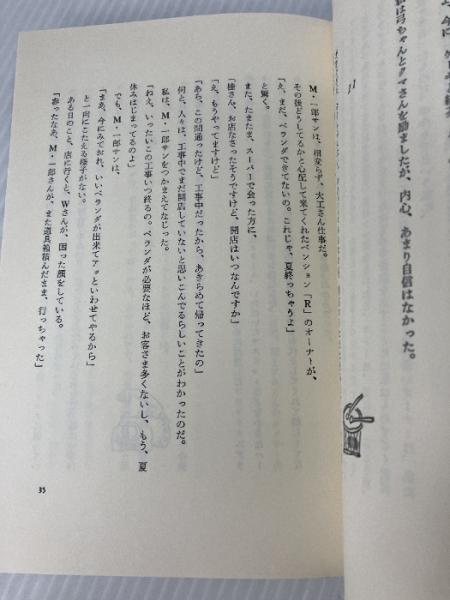 私は弓ちゃんとクマさんを励ましたが、内心、あまり自信はなかった。
M・一郎サンは、相変らず、大工さん仕事だ。
その後どうしてるかと心配して来てくれたペンション「R」のオーナーが、
「え、まだ、ベランダできてないの。これじゃ、夏終っちゃうよ」
と驚く。
また、たまたま、スーパーで会った方に、
「桂さん、お店なさったそうですけど、開店はいつなんですか」
「え、もうやってますけど」
「あら、この間通ったけど、工事中だったから、あきらめて帰ってきたの」
何と、人々は、工事中でまだ開店していないと思いこんでるらしいことがわかったのだ。
私は、M・一郎サンをつかまえてなじった。
「ねえ、いったいこの工事いつ終るの。ベランダが必要なほど、お客さま多くないし、もう、夏
休みはじまってるのよ」
でも、M・一郎サンは、
「まあ、今にみておれ、いいベランダが出来てアッといわせてやるから」
と一向にこたえる様子がない。
ある日のこと、店に行くと、Wさんが、困った顔をしている。
「参ったなあ、M・一郎さんが、また道具箱積んだまま、行っちゃった」
35